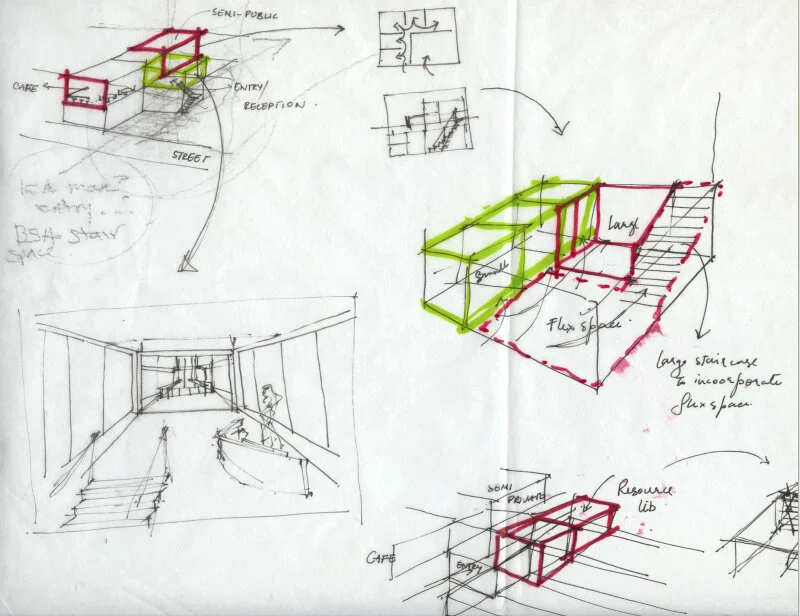 SEMI-PUBLIC
CAFE
ENTRY/
RECEPTION.
STREET
entry...
BSA stair
space.
Large
Small
Flux space.
large staircase
to incoorporate
flux space.
SEMI
PRIVATE
Resource
lib
CAFE
ENTRY